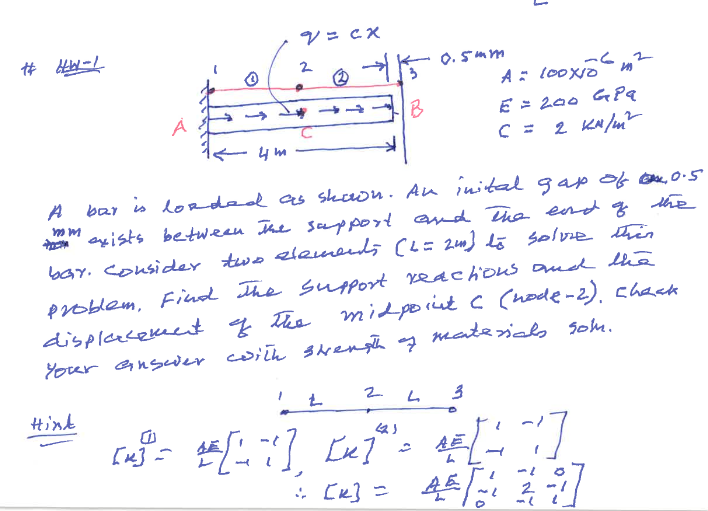 q = cx
# HW-1
1 ① 2 ② 3 0.5mm
A = 100x10⁻⁶ m²
E = 200 GPa
C = 2 KN/m²
A C B
4m
A bar is loaded as shown. An inital gap of 0.5
mm exists between the support and the end of the
bar. Consider two elements (L = 2m) to solve this
problem. Find the support reactions and the
displacement of the midpoint C (node-2). Check
your answer with strength of materials soln.
1 L 2 L 3
Hint
[K]⁽¹⁾ = AE/L [1 -1; -1 1], [K]⁽²⁾ = AE/L [1 -1; -1 1]
∴ [K] = AE/L [1 -1 0; -1 2 -1; 0 -1 1]